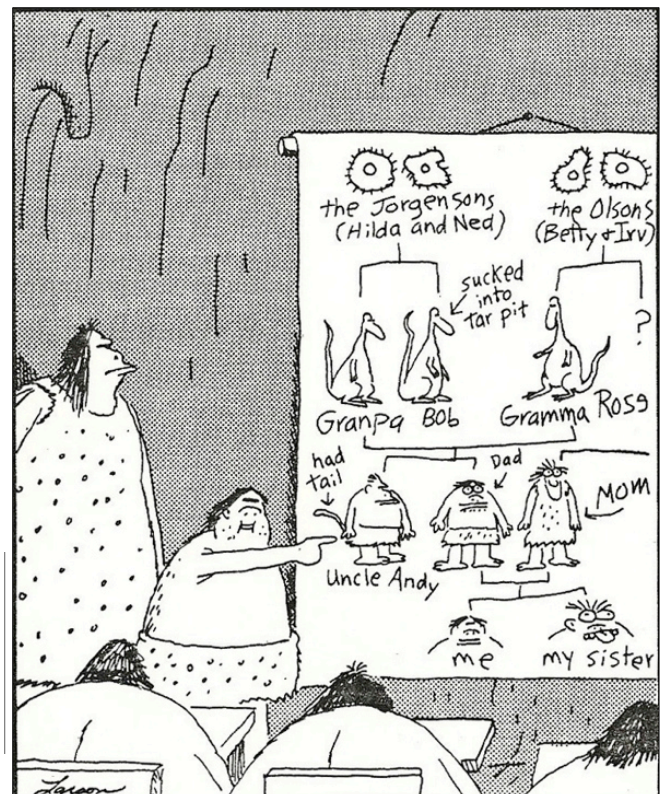 the Jorgensons
(Hilda and Ned)
the Olsons
(Betty & Irv)
sucked
into
tar pit
?
Granpa
Bob
Gramma Rose
had
tail
Dad
Mom
Uncle Andy
me
my sister
Larson